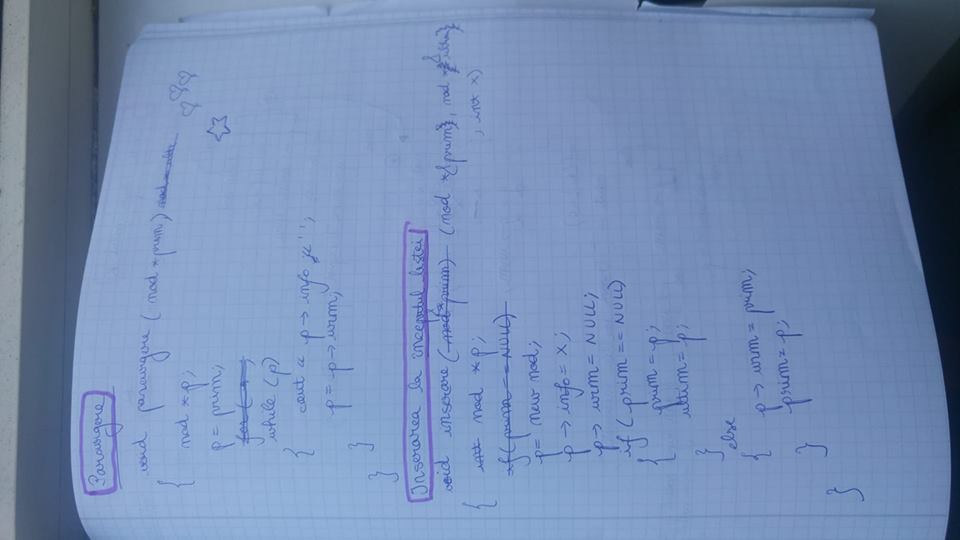 Parcurgere
void parcurgere (nod *prim)
{
nod *p;
p = prim;
for (
while (p)
{
cout << p → info << " ";
p = p → urm;
}
}
Inserarea la inceputul listei
void inserare (nod *prim) (nod *&prim, nod *&ultim, int x)
{
int nod *p;
if (prim == NULL)
p = new nod;
p → info = x;
p → urm = NULL;
if (prim == NULL)
{
prim = p;
ultim = p;
}
else
{
p → urm = prim;
prim = p;
}
}